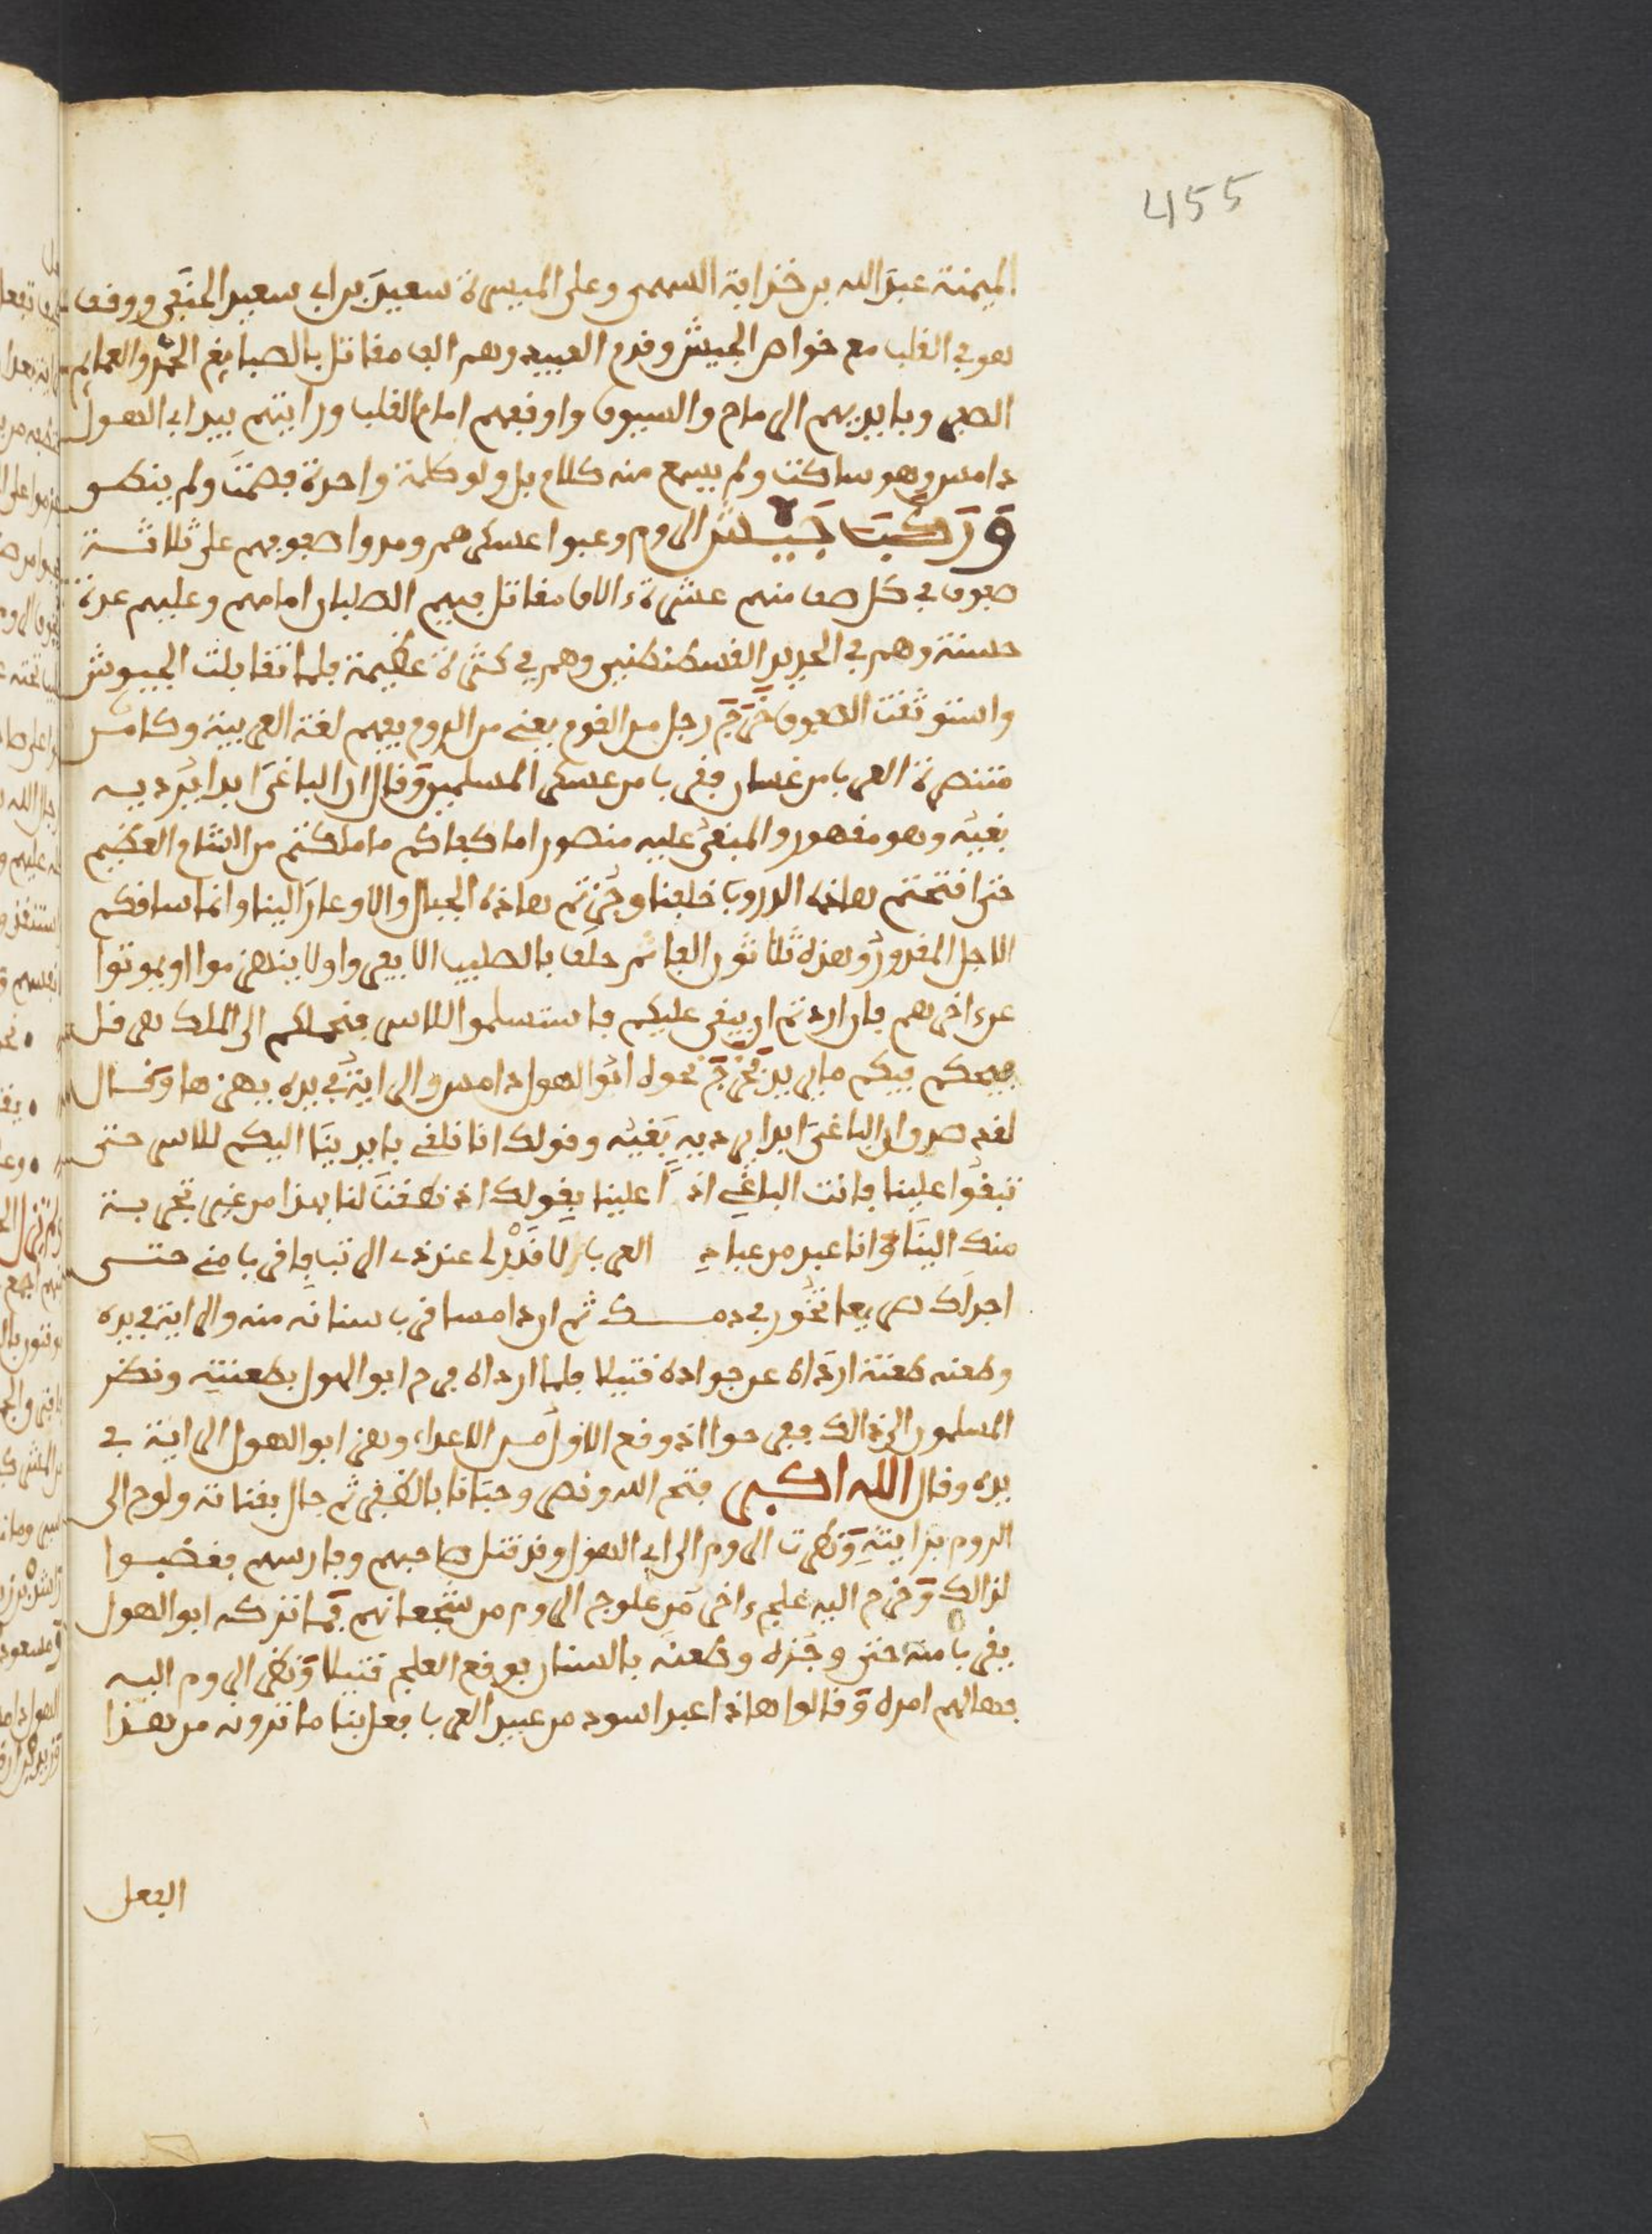 455
الميمنة عبد الله بن حذافة السهمى وعلى الميسرة سعيد بن ابى سعيد الحنفى ووقف
هو فى القلب مع خواص الجيش وقدم العبيد وهم الف مقاتل بالصبايغ الحمر والعمايم
الصفر وبايديهم الرماح والسيوف واوقفهم امام القلب ورايتهم بيد ابى الهول
دامس وهو ساكت ولم يسمع منه كلام بل ولو كلمة واحدة فصمت ولم ينطو
وركبت جيش الروم وعبوا عسكرهم ومدوا صفوفهم على ثلاثة
صفوف فى كل صف منهم عشرة ءالاف مقاتل فيهم الصلبان امامهم وعليهم عدة
حسنة وهم فى الحديد القسطنطنين وهم فى كثرة عظيمة فلما تقابلت الجيوش
واستوثقت الصفوف خرج رجل من القوم يعنى من الروم يفهم لغة العربية وكان من
متنصرة العرب من غسان فقرب من عسكر المسلمين وقال ان الباغى ابدا يرديه
بغيه وهو مقهور والمبغى عليه منصور اما كفاكم ما ملكتم من الشام العظيم
حتى اقتحمتم هاذه الدروب خلفنا وجزتم هاذه الجبال والاوعار الينا وانما ساقكم
الاجل المقدور وهذه ثلاثون الفا ثم حلف بالصليب الا يفروا ولا ينهزموا او يموتوا
عن ءاخرهم فان اردتم ان يبقى عليكم فاستسلموا للاسر فنحملكم الى الملك هرقل
فيحكم فيكم ما يريد فخرج نحوه ابو الهول دامس والراية فى يده يهزها وقال
لقد صدق ان الباغى ابدا يرديه بغيه وقولك انا نلقى بايدينا اليكم للاسر حتى
تبقوا علينا فانت الباغى اذ ا علينا بقولك اذ نطقت لنا بهذا من غير تجربة
منك الينا وانا عبد من عباد العرب لا قدر لى عند ذى الرتب فاقرب منى حتى
اجدلك صريعا تخور فى دمك ثم ان دامسا قرب سنانه منه والراية فى يده
وطعنه طعنة ارداه عن جواده قتيلا فلما ارداه فرح ابو الهول بطعنته ونظر
المسلمون الى ذالك ففرحوا اذ وقع الاول من الاعداء وهز ابو الهول الراية فى
يده وقال الله اكبر فتح الله ونصر وحبانا بالظفر ثم جال بقناته ولوح الى
الروم برايته ونظرت الروم الى ابى الهول وقد قتل صاحبهم وفارسهم فغضبوا
لذالك وخرج اليه علج ءاخر من علوج الروم من شجعانهم فما تركه ابو الهول
يقرب منه حتى وجزه وطعنه بالسنان فوقع العلج قتيلا ونظر الروم اليه
فهالهم امره وقالوا هاذا عبد اسود من عبيد العرب فعل بنا ما ترونه من هذا
الفعل